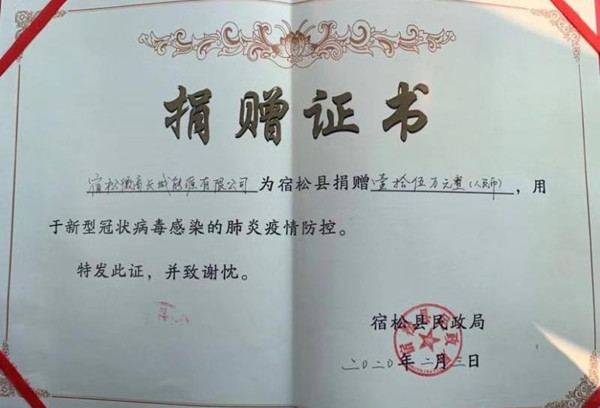 捐赠证书
宿松徽商长城融资有限公司为宿松县捐赠壹拾伍万元整(人民币),用
于新型冠状病毒感染的肺炎疫情防控。
特发此证,并致谢忱。
宿松县民政局
二〇二〇年二月三日